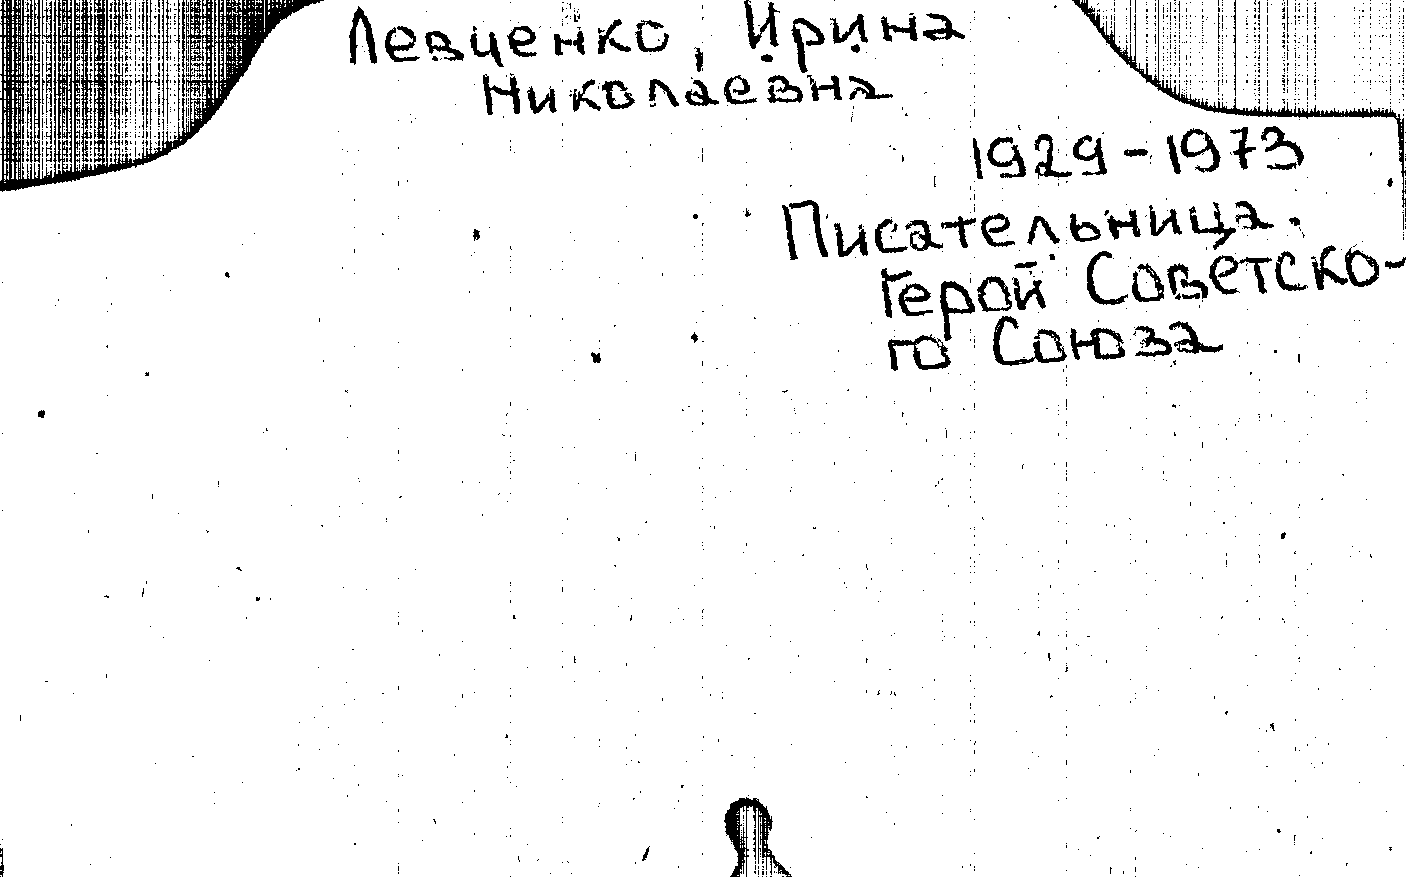 Левченко, Ирина
Николаевна
1929-1973
Писательница.
Герой Советско-
го Союза